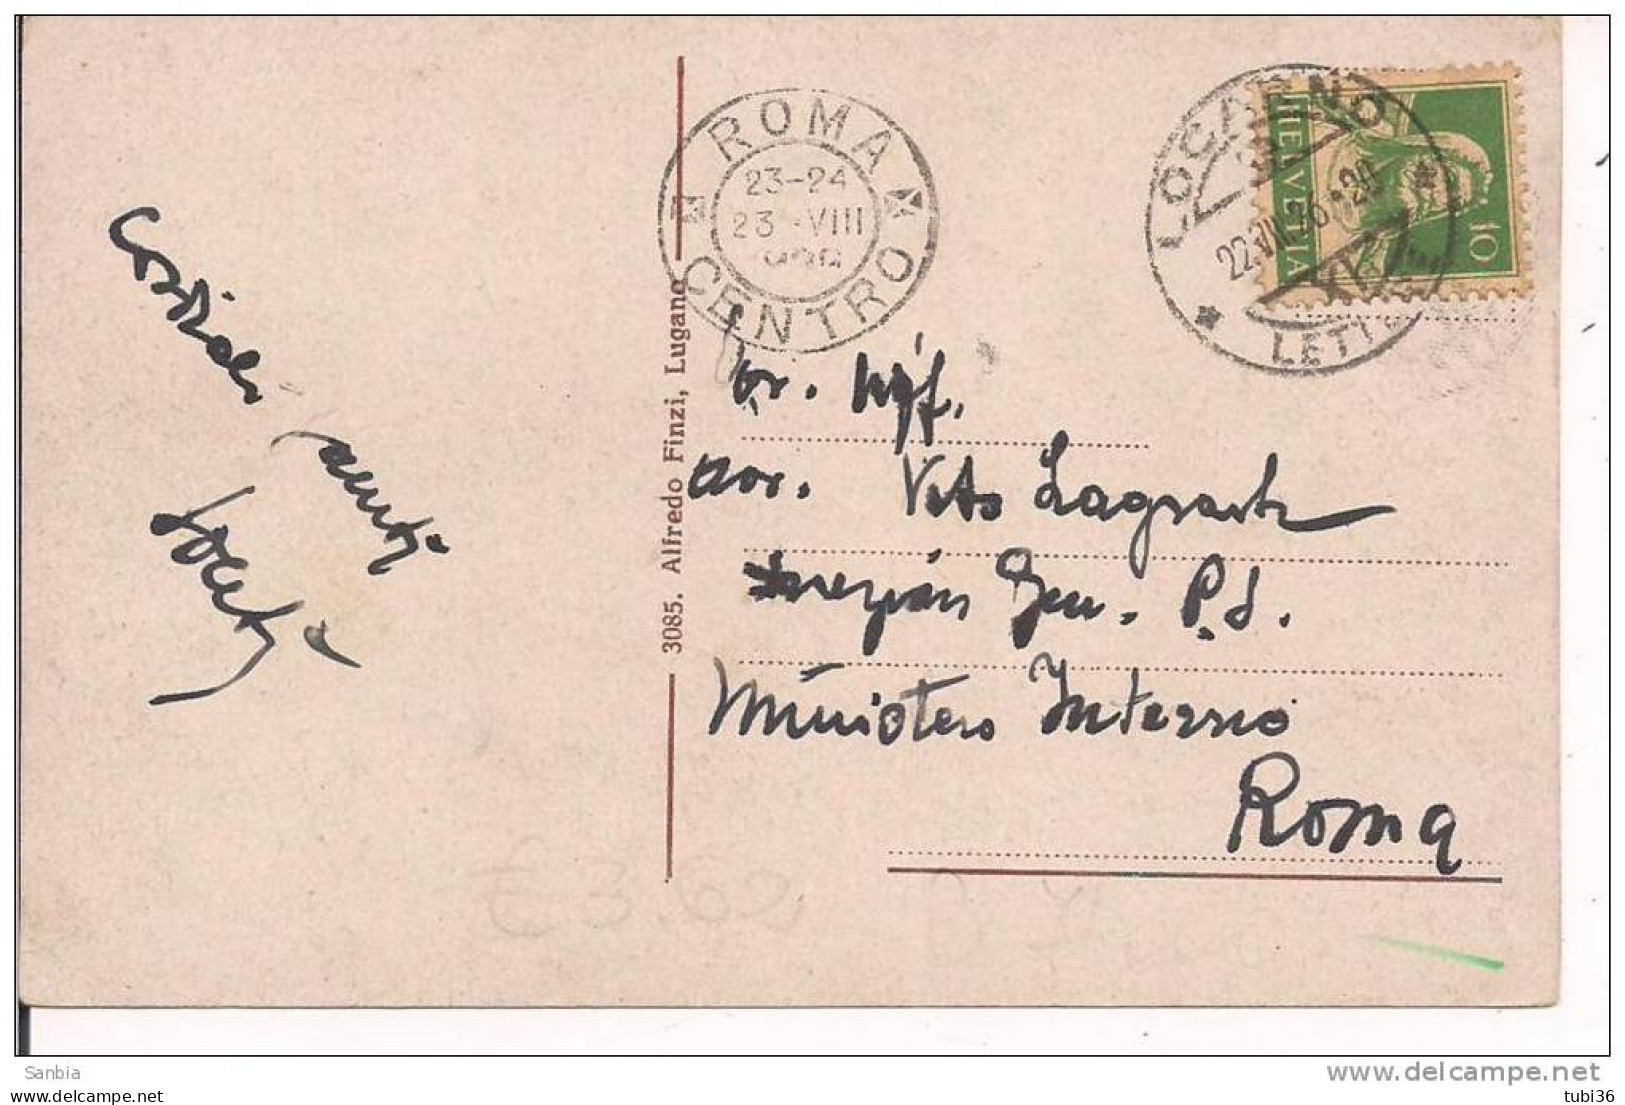 Cordiali saluti
ROMA
23-24
23-VIII
CENTRO
LOCARNO
22.VII.26 20
LETT
HELVETIA
10
3085. Alfredo Finzi, Lugano
Gr. Uff.
avv. Vito
Gen. P.S.
Ministero Interno
Roma
€ 3.62
Sanbia
www.delcampe.net
tubi36